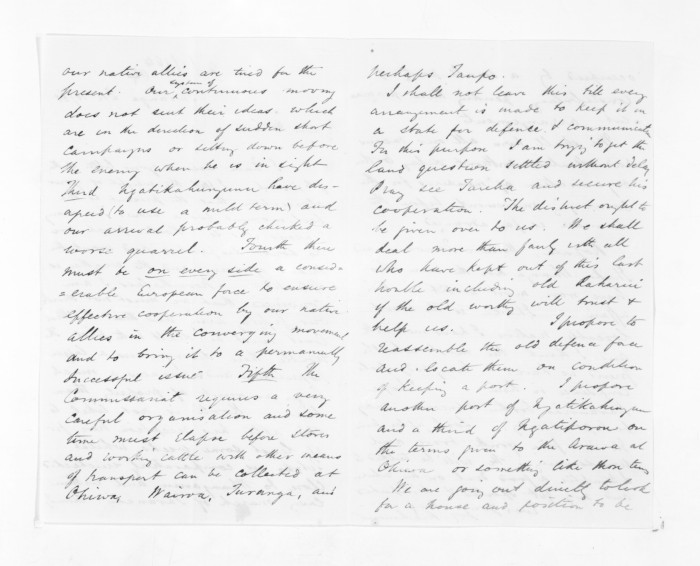 our native allies are tired for the
present. Our system of continuous moving
does not suit their ideas which
are in the direction of sudden short
campaigns or sitting down before
the enemy when he is in sight
Third Ngatikahungunu have dis-
agreed (to use a mild term) and
our arrival probably checked a
worse quarrel. Fourth there
must be on every side a consid=
=erable European force to ensure
effective cooperation by our native
allies in the converging movement
and to bring it to a permanently
successful issue Fifth The
Commissariat requires a very
careful organisation and some
time must elapse before stores
and working cattle with other means
of transport can be collected at
Ohiwa, Wairoa, Turanga, and
perhaps Taupo.
I shall not leave this till every
arrangement is made to keep it in
a state for defence & communication
For this purpose I am trying to get the
land question settled without delay
Pray see Tareha and secure his
cooperation. The district ought to
be given over to us. We shall
deal more than fairly with all
who have kept out of this last
trouble including old
if the old worthy will trust &
help us. I propose to
reassemble the old defence force
and locate them on condition
of keeping a post. I propose
another post of Ngatikahungunu
and a third of Ngatiporou on
the terms given to the Arawa at
Ohiwa or something like them
We are going out directly to look
for a house and position to be